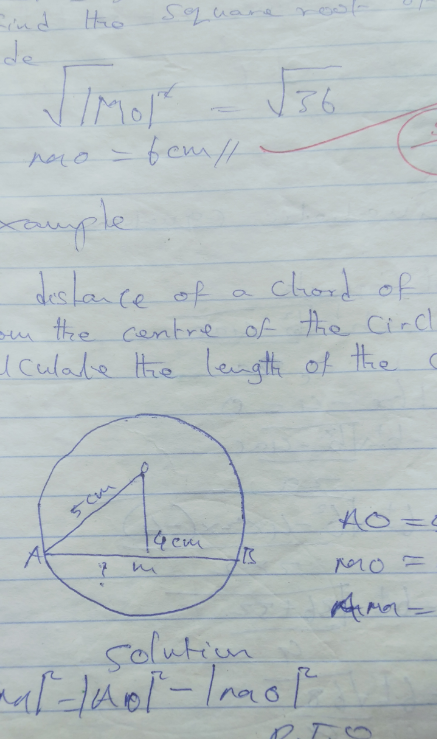 find the square root of
de
√|MO|² = √36
mo = 6cm//
xample
distance of a chord of
om the centre of the circl
lculate the length of the c
O
5cm
4cm
A
B
?
m
AO =
mo =
Am =
Solution
ma|² = |AO|² - |mo|²
P.T.O